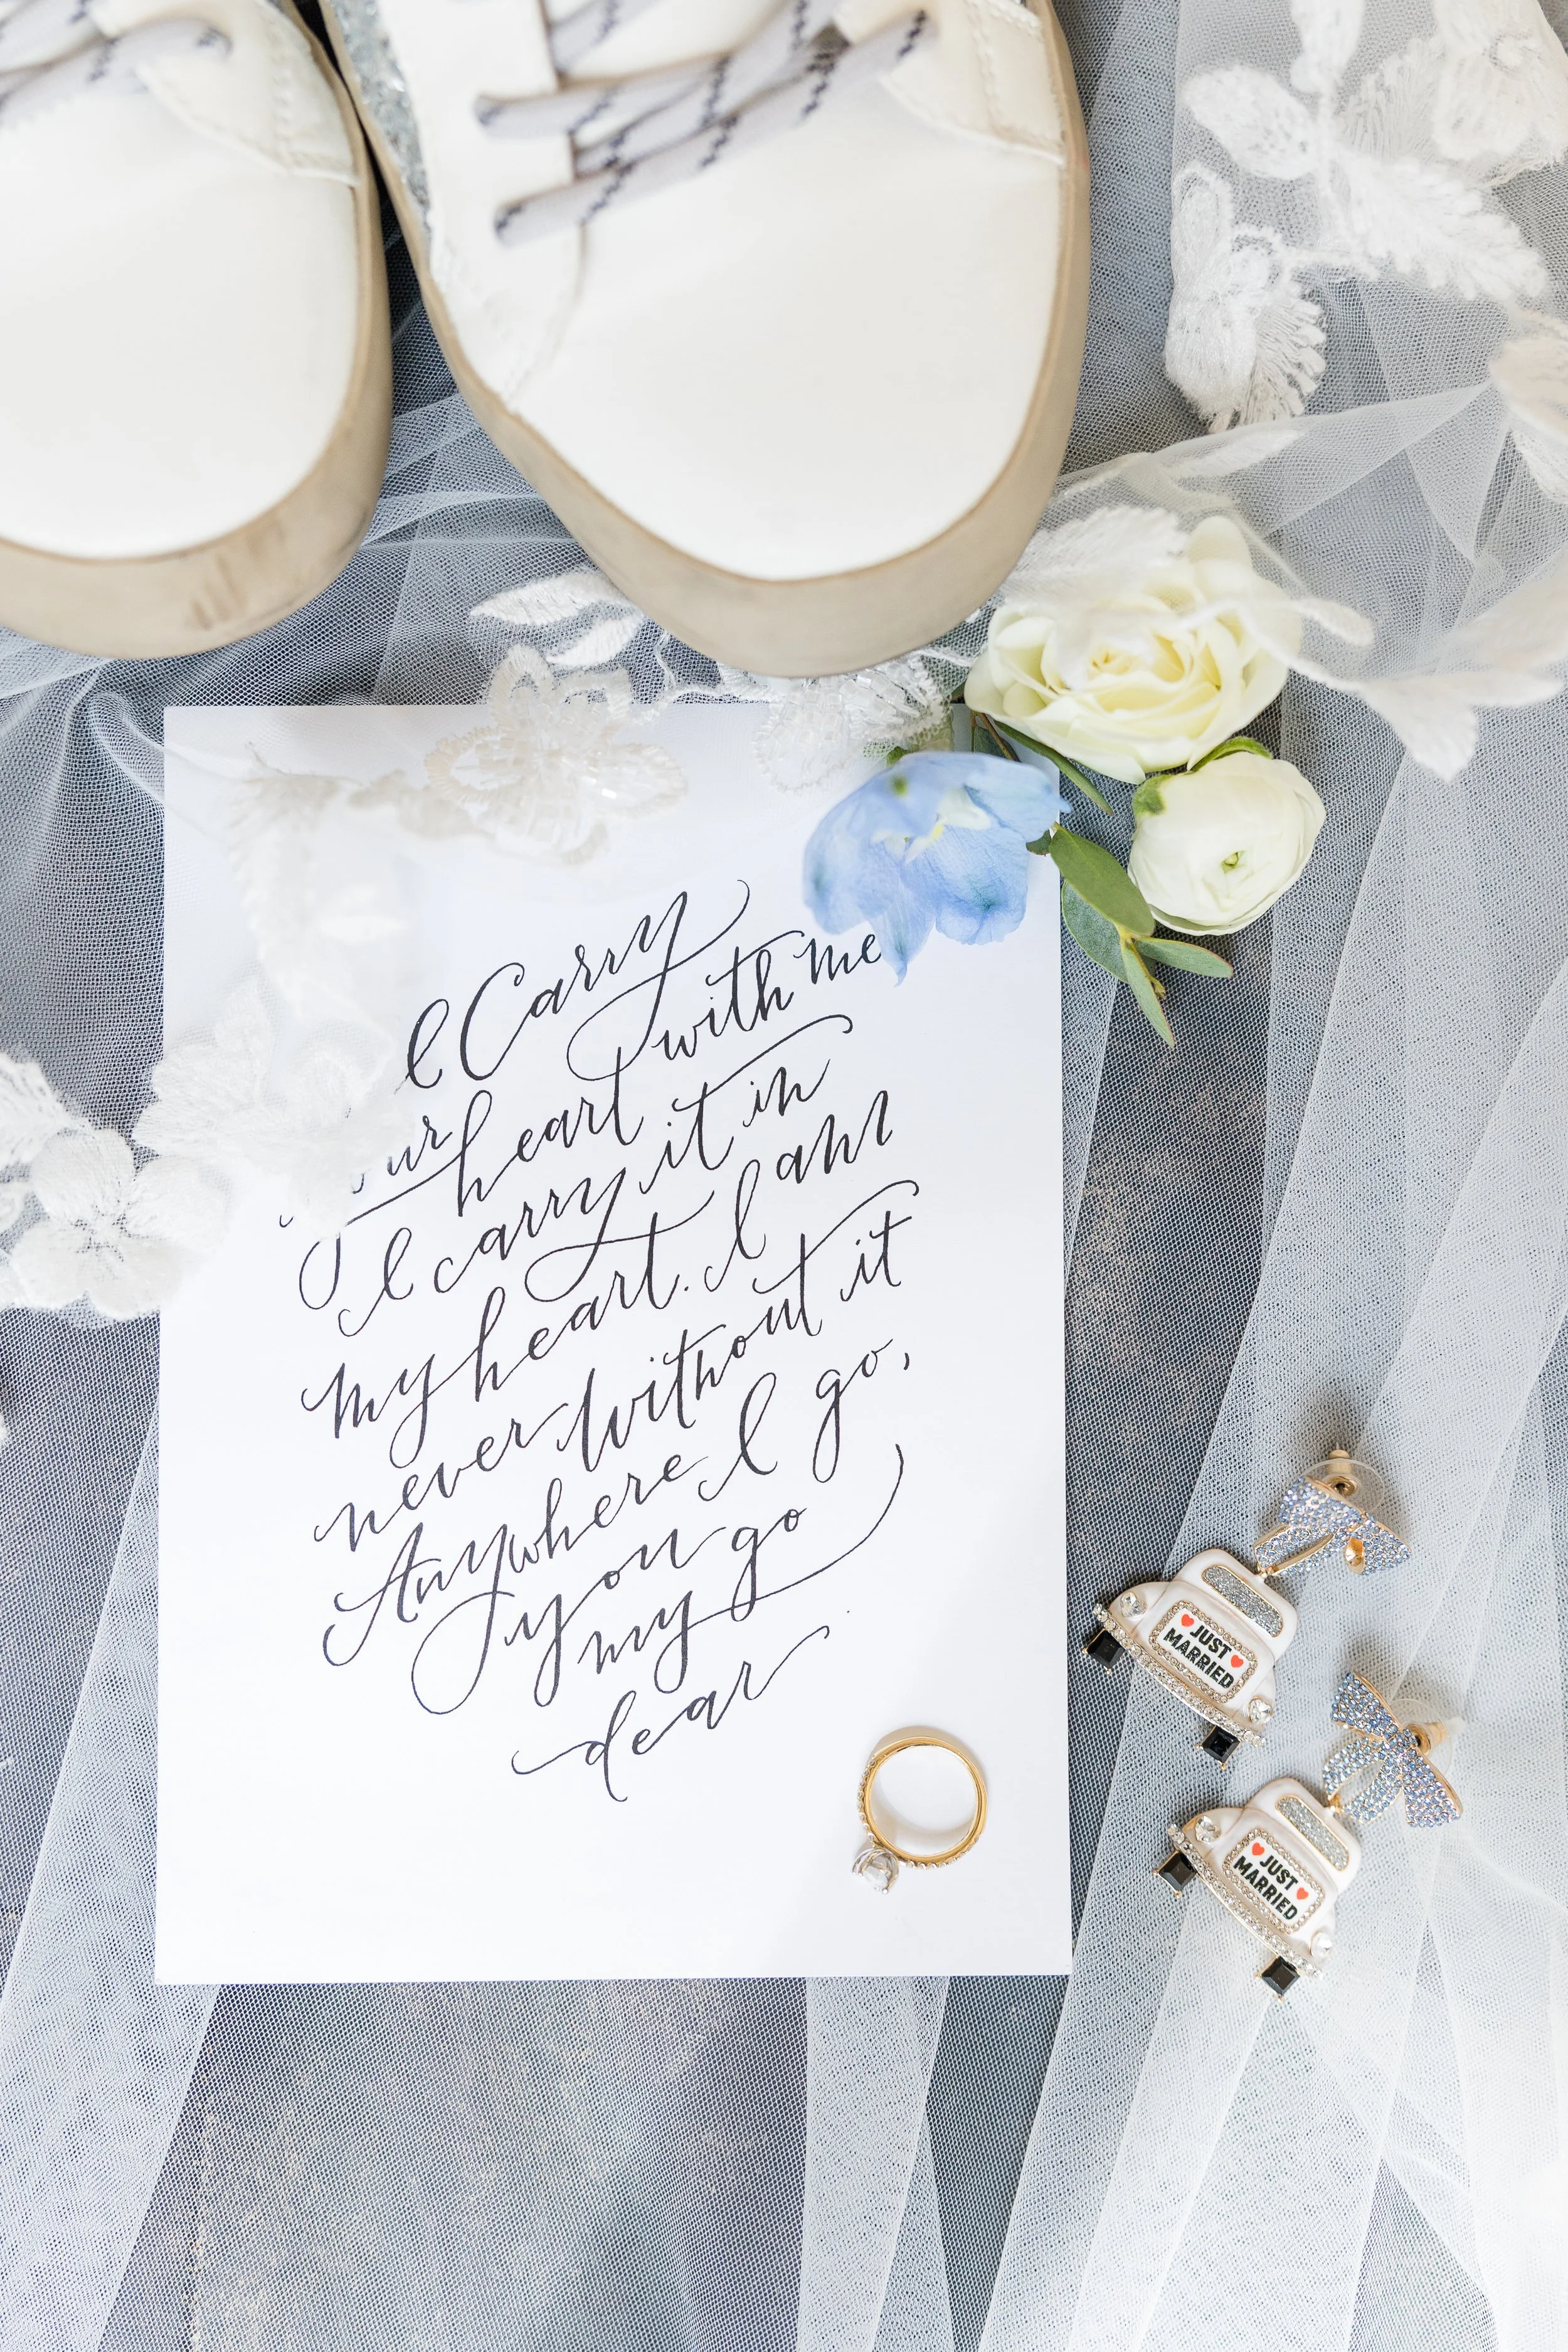 I Carry
your heart with me
I carry it in
my heart. I am
never without it
Anywhere I go,
you go
my
dear
JUST
MARRIED
JUST
MARRIED